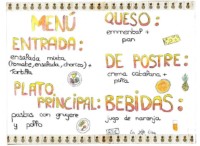 MENÚ
ENTRADA:
ensalada mixta
(tomate, ensalada, chorizo) +
Tortilla
PLATO
PRINCIPAL:
pasta con gruyere
y pollo
QUESO:
emmental +
pan
DE POSTRE:
crema catalana +
piña
BEBIDAS:
jugo de naranja